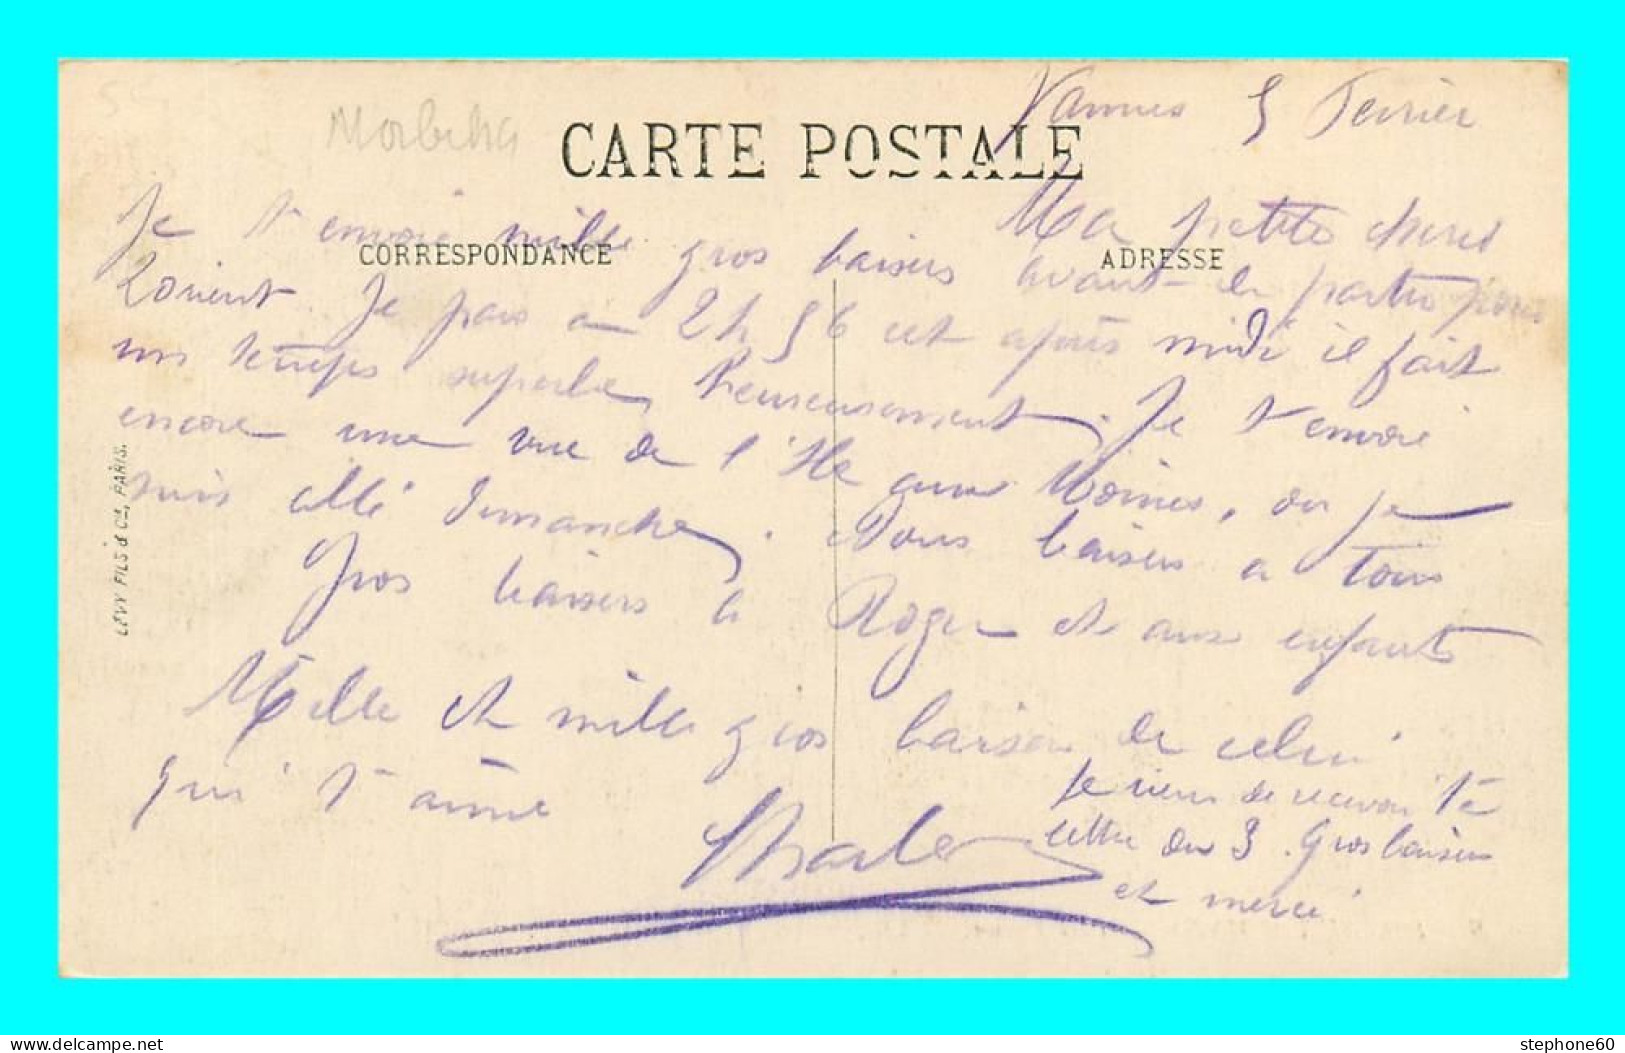 Vannes 5 Fevrier
Morbihan
CARTE POSTALE
Ma petite cherie
CORRESPONDANCE
ADRESSE
Je t'envoie mille gros baisers avant de partir pour
Lorient. Je pars a 2h56 cet après midi il fait
un temps superbe, heureusement. Je t'envoie
encore une vue de l'Ile aux Moines, ou je
suis allé dimanche. Bons baisers a tous
Gros baisers a Roger et aux enfants
Mille et mille gros baisers de celui
qui t'aime
Charles
Je viens de recevoir ta
lettre du 3. Gros baisers
et merci
LÉVY FILS & Cie, PARIS.
stephone60